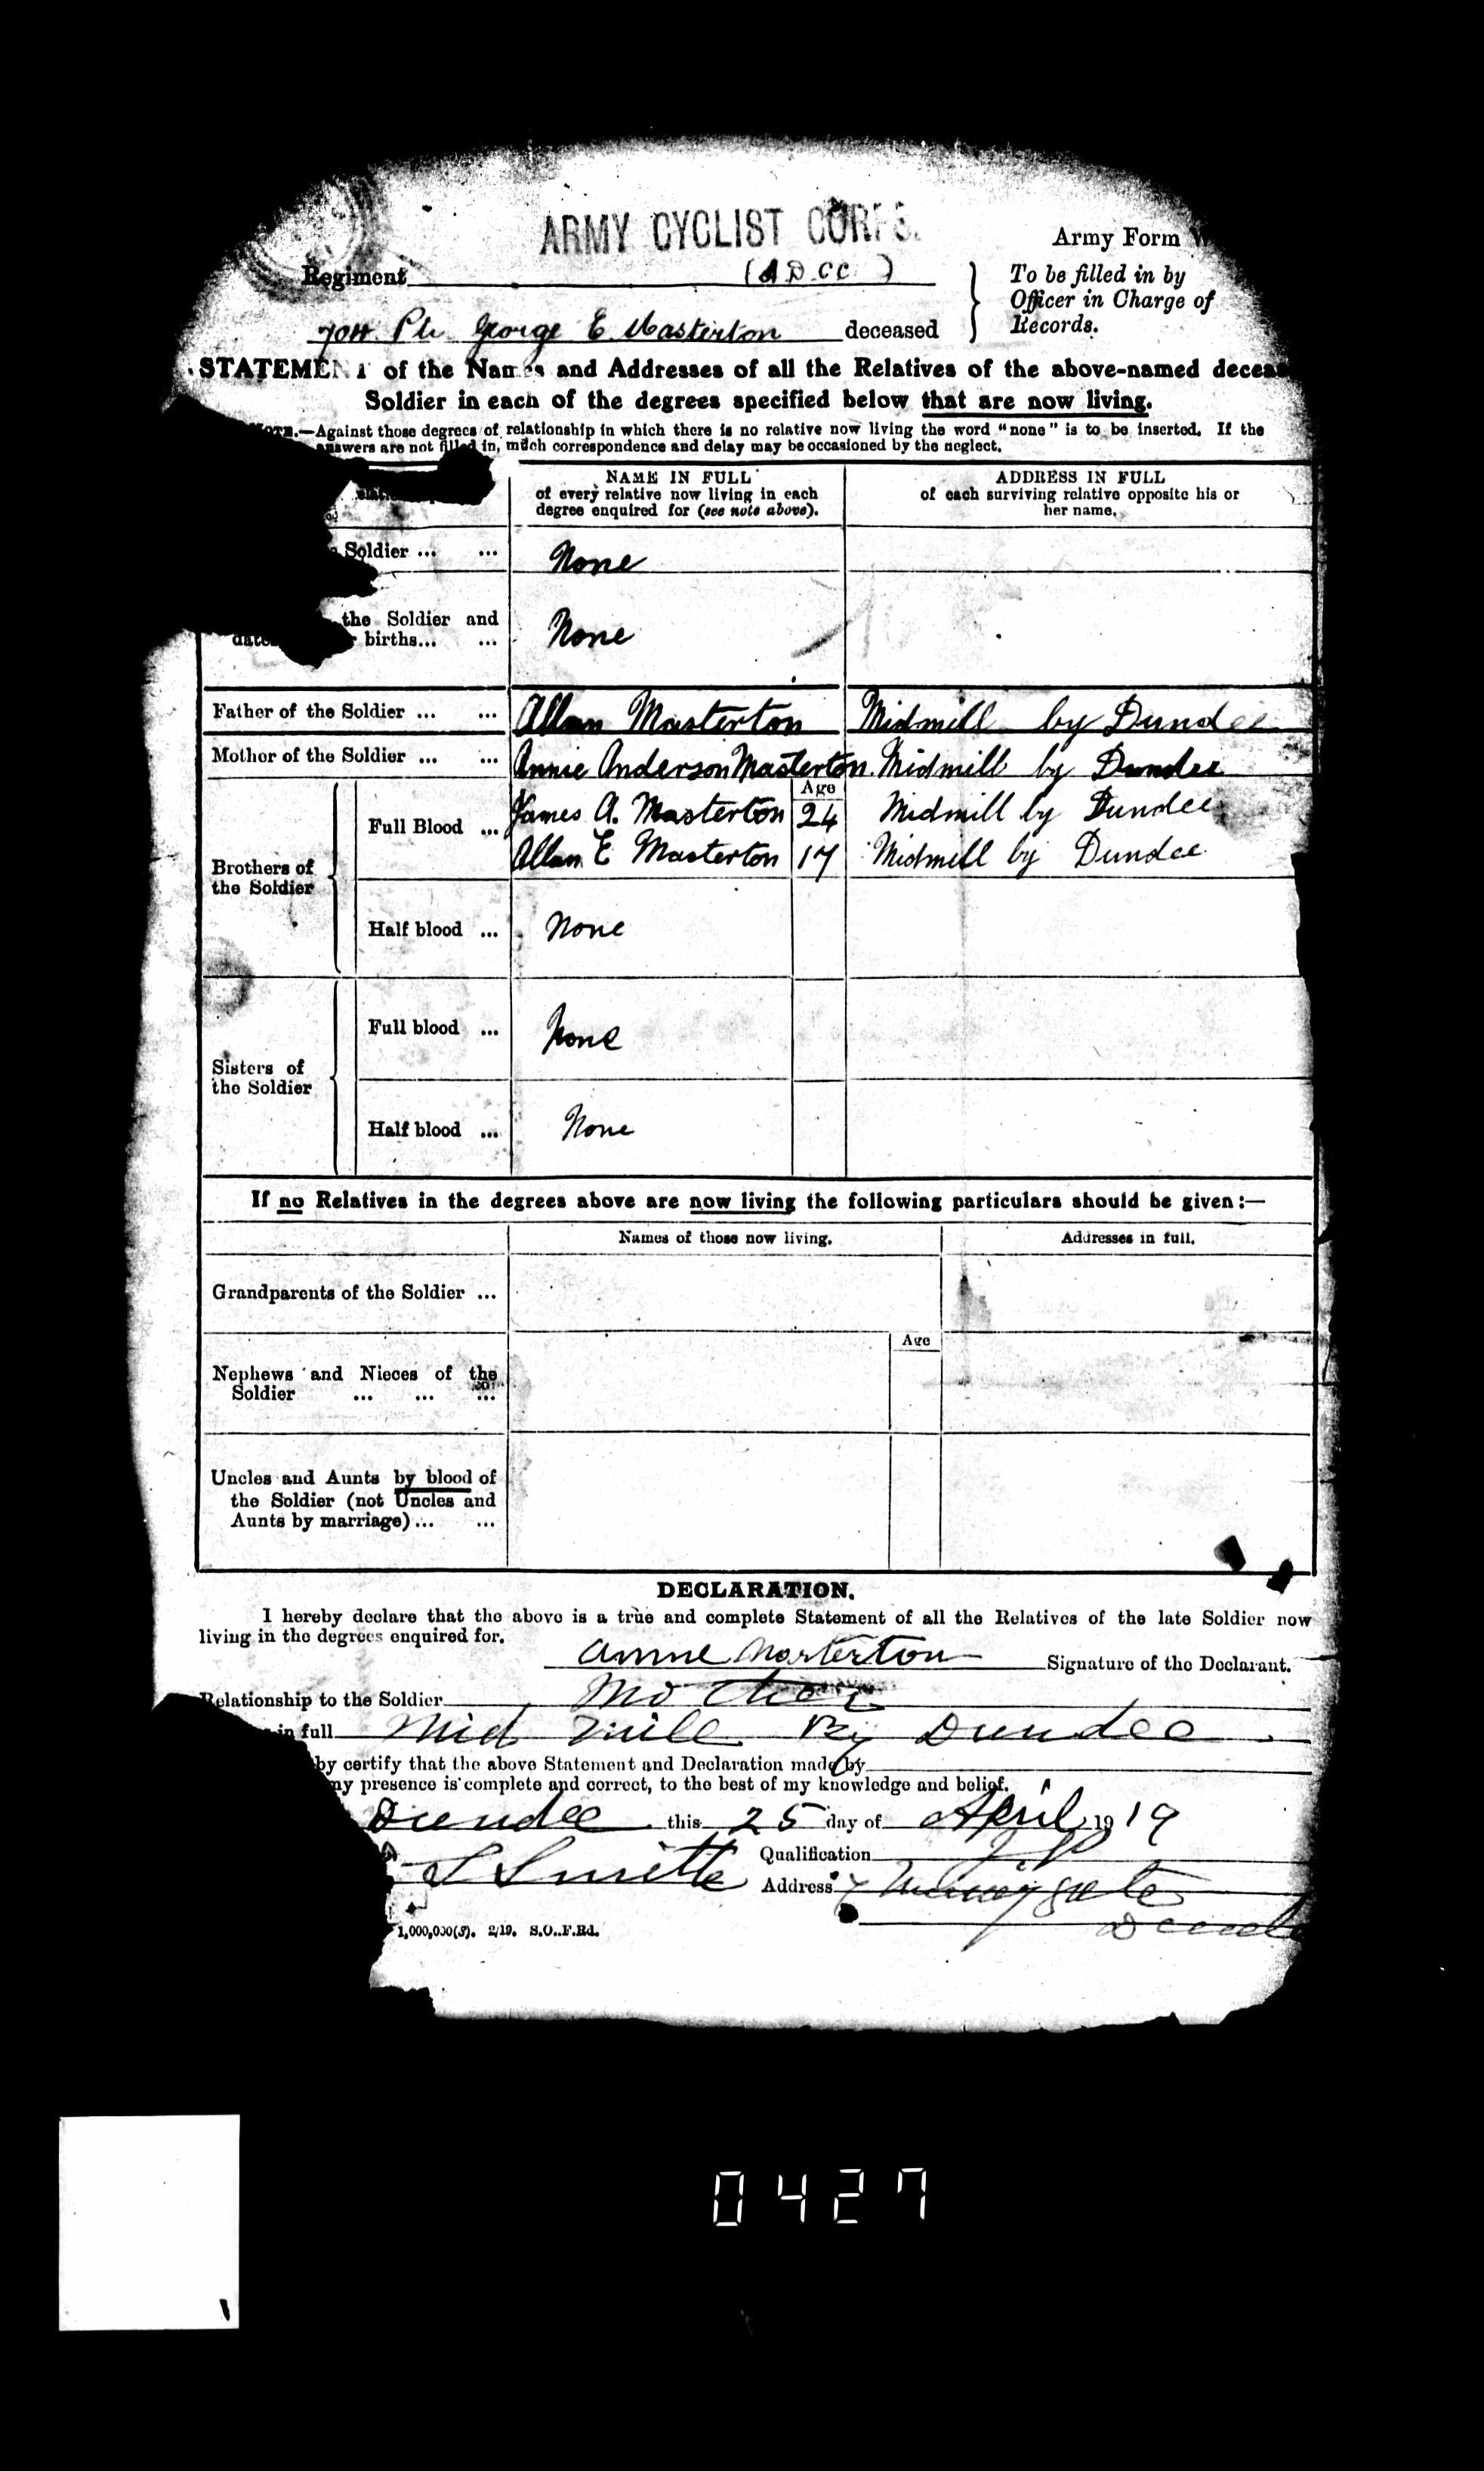 ARMY CYCLIST CORPS.
Army Form
Regiment (A.D.CC)
To be filled in by
Officer in Charge of
Records.
Pte George E Masterton deceased
STATEMENT of the Names and Addresses of all the Relatives of the above-named deceas
Soldier in each of the degrees specified below that are now living.
NOTE.—Against those degrees of relationship in which there is no relative now living the word "none" is to be inserted. If the
answers are not filled in, much correspondence and delay may be occasioned by the neglect.
NAME IN FULL
of every relative now living in each
degree enquired for (see note above).
ADDRESS IN FULL
of each surviving relative opposite his or
her name.
Soldier ... ... None
the Soldier and
births... ... None
Father of the Soldier ... ... Allan Masterton Midmill by Dundee
Mother of the Soldier ... ... Annie Anderson Masterton Midmill by Dundee
Age
Brothers of
the Soldier
Full Blood ... James A. Masterton 24 Midmill by Dundee
Allan E Masterton 17 Midmill by Dundee
Half blood ... None
Sisters of
the Soldier
Full blood ... None
Half blood ... None
If no Relatives in the degrees above are now living the following particulars should be given:—
Names of those now living. Addresses in full.
Grandparents of the Soldier ...
Age
Nephews and Nieces of the
Soldier ... ... ...
Uncles and Aunts by blood of
the Soldier (not Uncles and
Aunts by marriage)... ...
DECLARATION.
I hereby declare that the above is a true and complete Statement of all the Relatives of the late Soldier now
living in the degrees enquired for.
Annie Masterton Signature of the Declarant.
Relationship to the Soldier Mother
in full Mid Mill By Dundee
by certify that the above Statement and Declaration made by
my presence is complete and correct, to the best of my knowledge and belief.
Dundee this 25 day of April 1919
Smith Qualification J.P.
Address
1,000,000(3). 2/19. S.O.,F.Rd.
0427